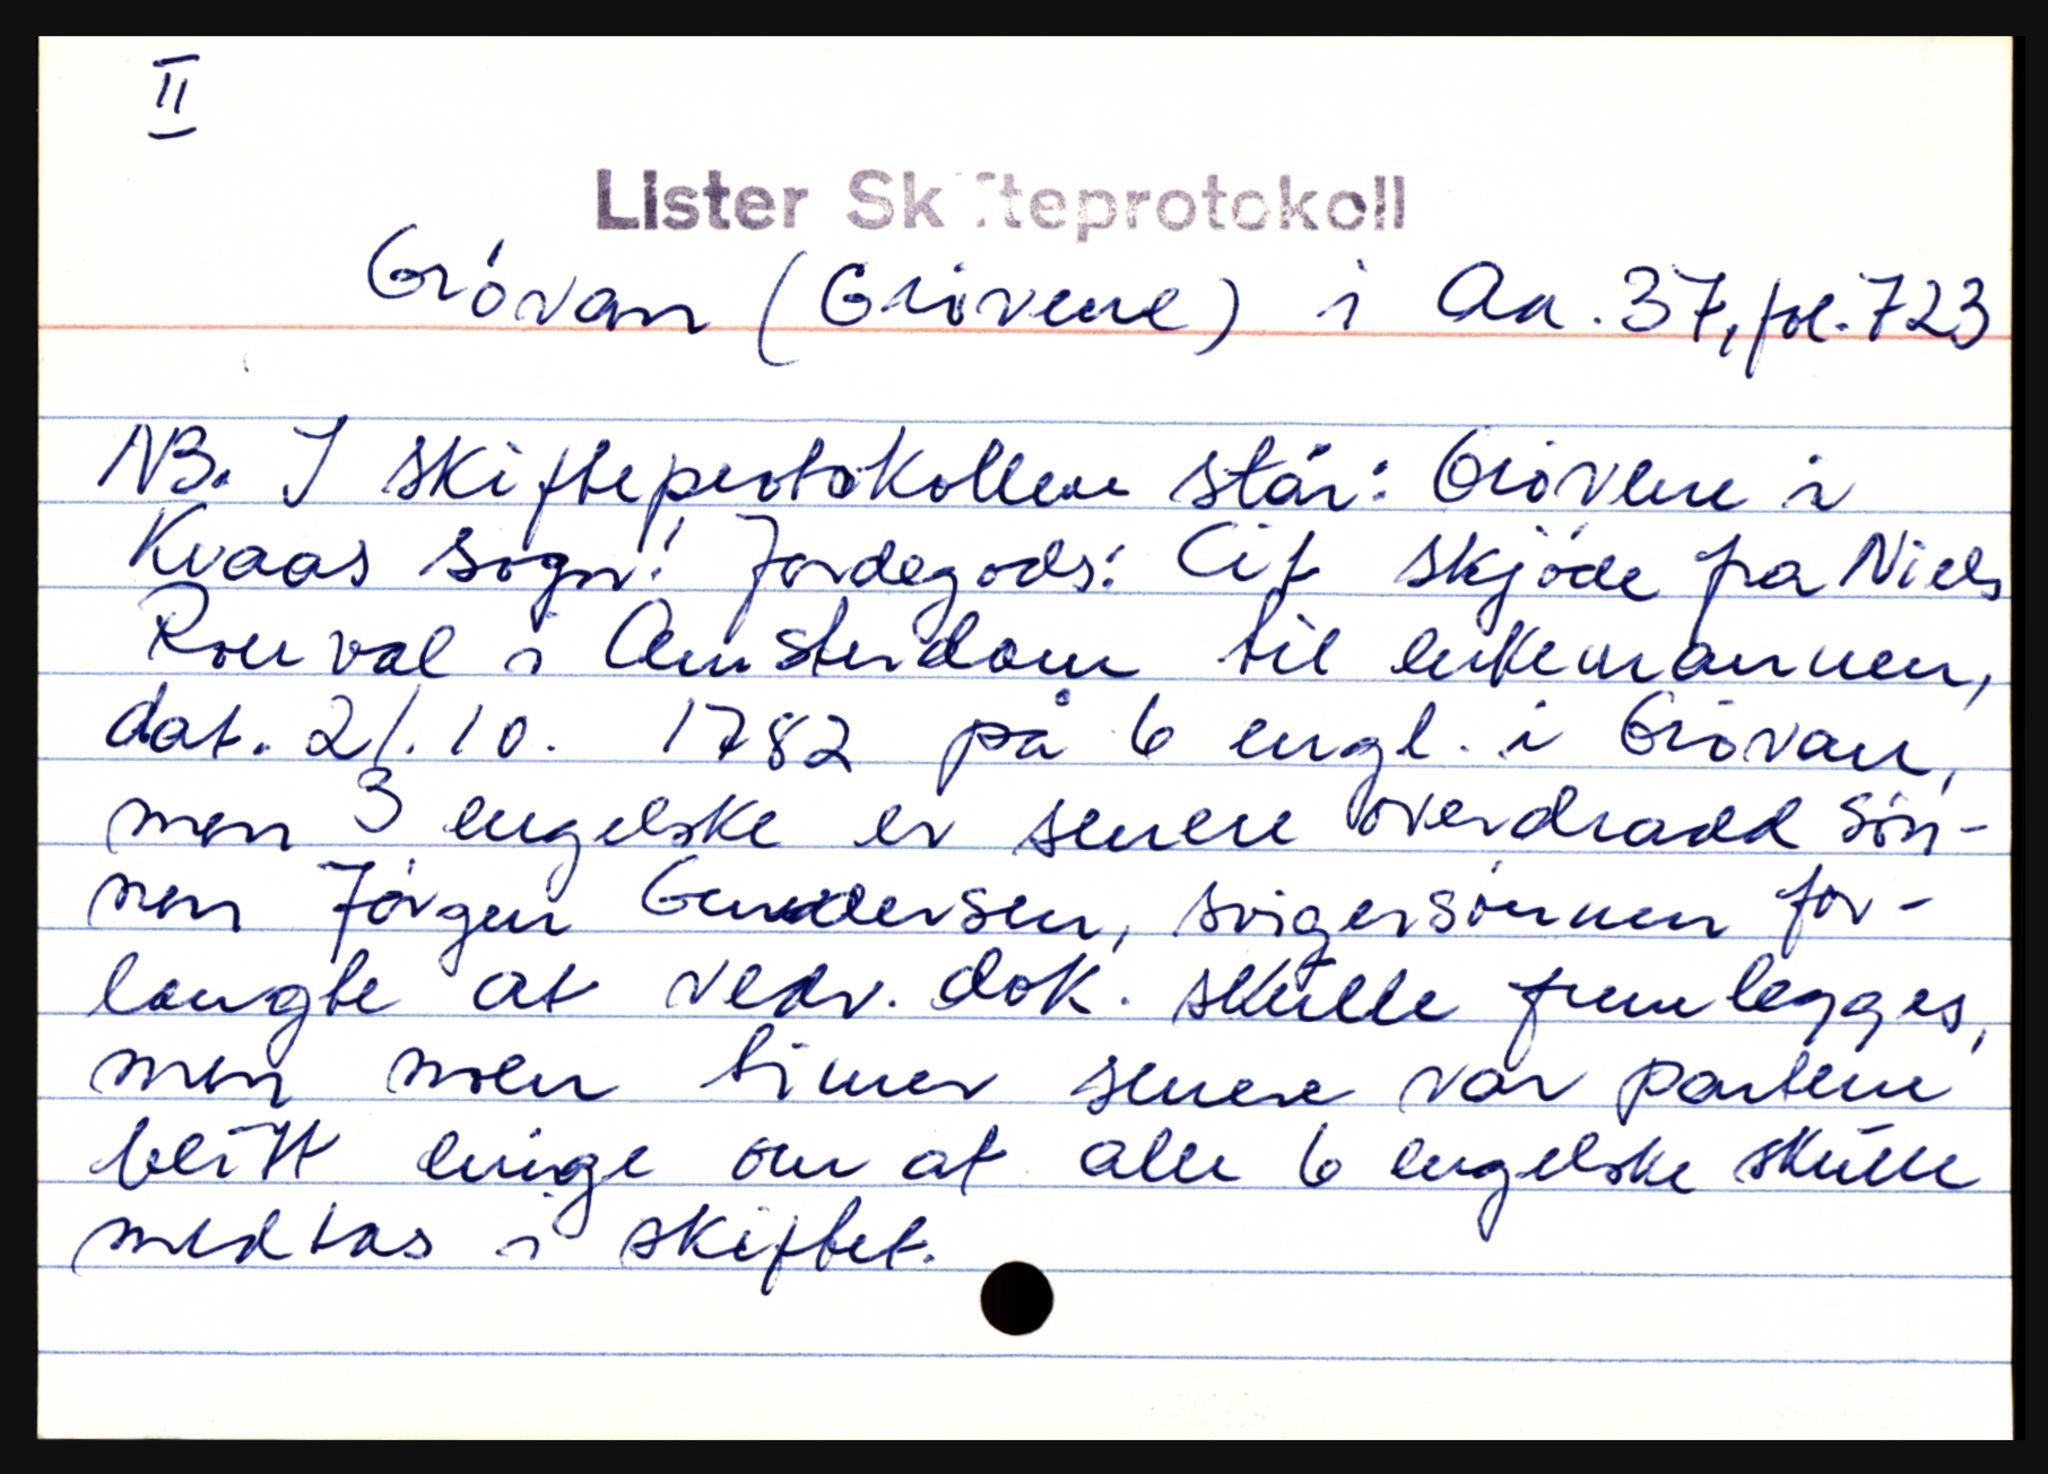 II
Lister Skifteprotokoll
Grövan (Grövene) i Aa. 37, fol. 723
NB. I skifteprotokollen står: Grövene i
Kvaas sogn! Jordegods: Cit skjöde fra Niels
i Amsterdam til enkemannen,
dat. 21.10. 1782 på 6 engl. i Grövan,
men 3 engelske er senere överdradd sön-
nen Jörgen Gundersen, svigersönnen for-
langte at vedr. dok. skulle fremlegges,
men noen timer senere var partene
blitt enige om at alle 6 engelske skulle
medtas i skiftet.